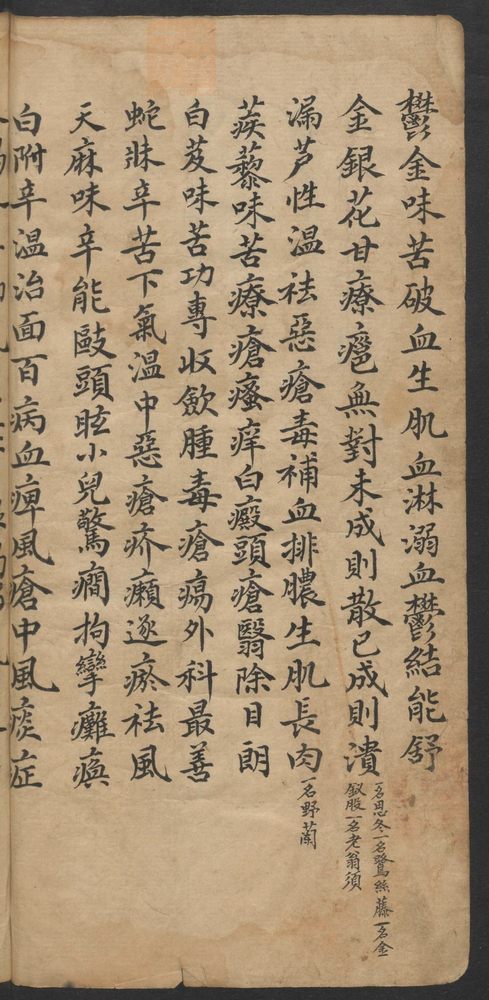 鬱金味苦破血生肌血淋溺血鬱結能舒
金銀花甘療癰無對未成則散已成則潰
一名忍冬一名鷺鷥藤一名金
釵股一名老翁須
漏芦性溫祛惡瘡毒補血排膿生肌長肉
一名野蘭
蒺藜味苦療瘡瘙痒白癜頭瘡翳除目朗
白芨味苦功專收歛腫毒瘡瘍外科最善
蛇牀辛苦下氣溫中惡瘡疥癩逐瘀祛風
天麻味辛能敺頭眩小兒驚癇拘攣癱瘓
白附辛温治面百病血痺風瘡中風痰症